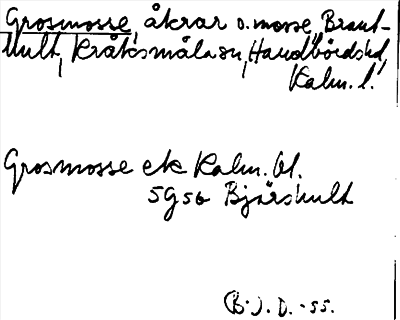 Grosmosse, åkrar o. mosse, Brant-
hult, Kråksmåla sn, Handbörds hd,
Kalm. l.
Grosmosse ek Kalm. bl.
5g5b Bjärshult
(B.J.D. -55.